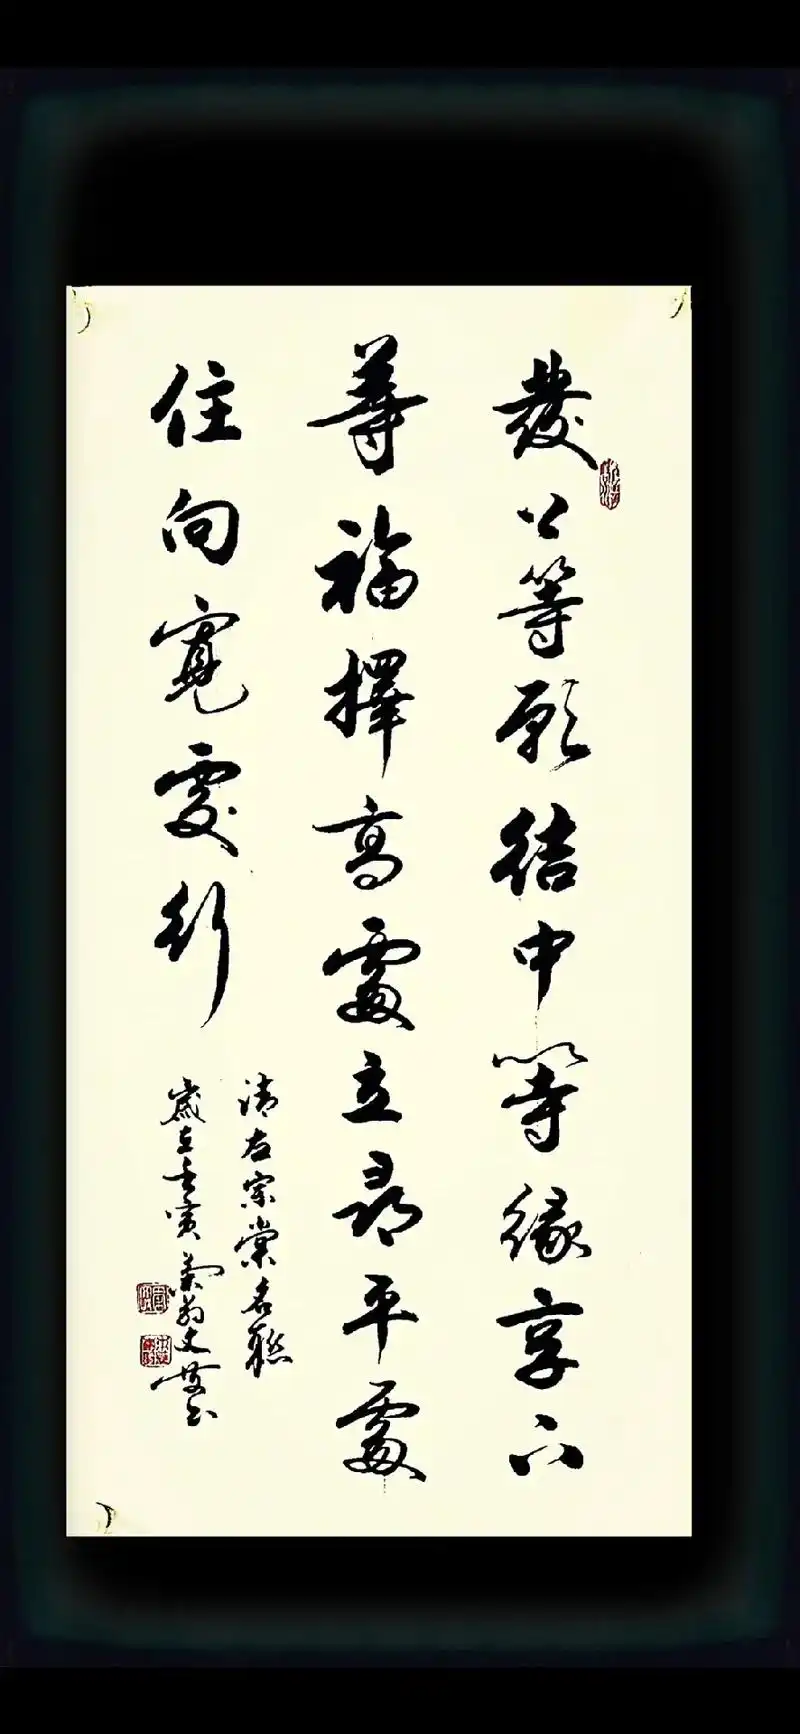 發上等願結中等緣享下
等福擇高處立尋平處
住向寬處行
清左宗棠名聯
歲在壬寅菊翁文書